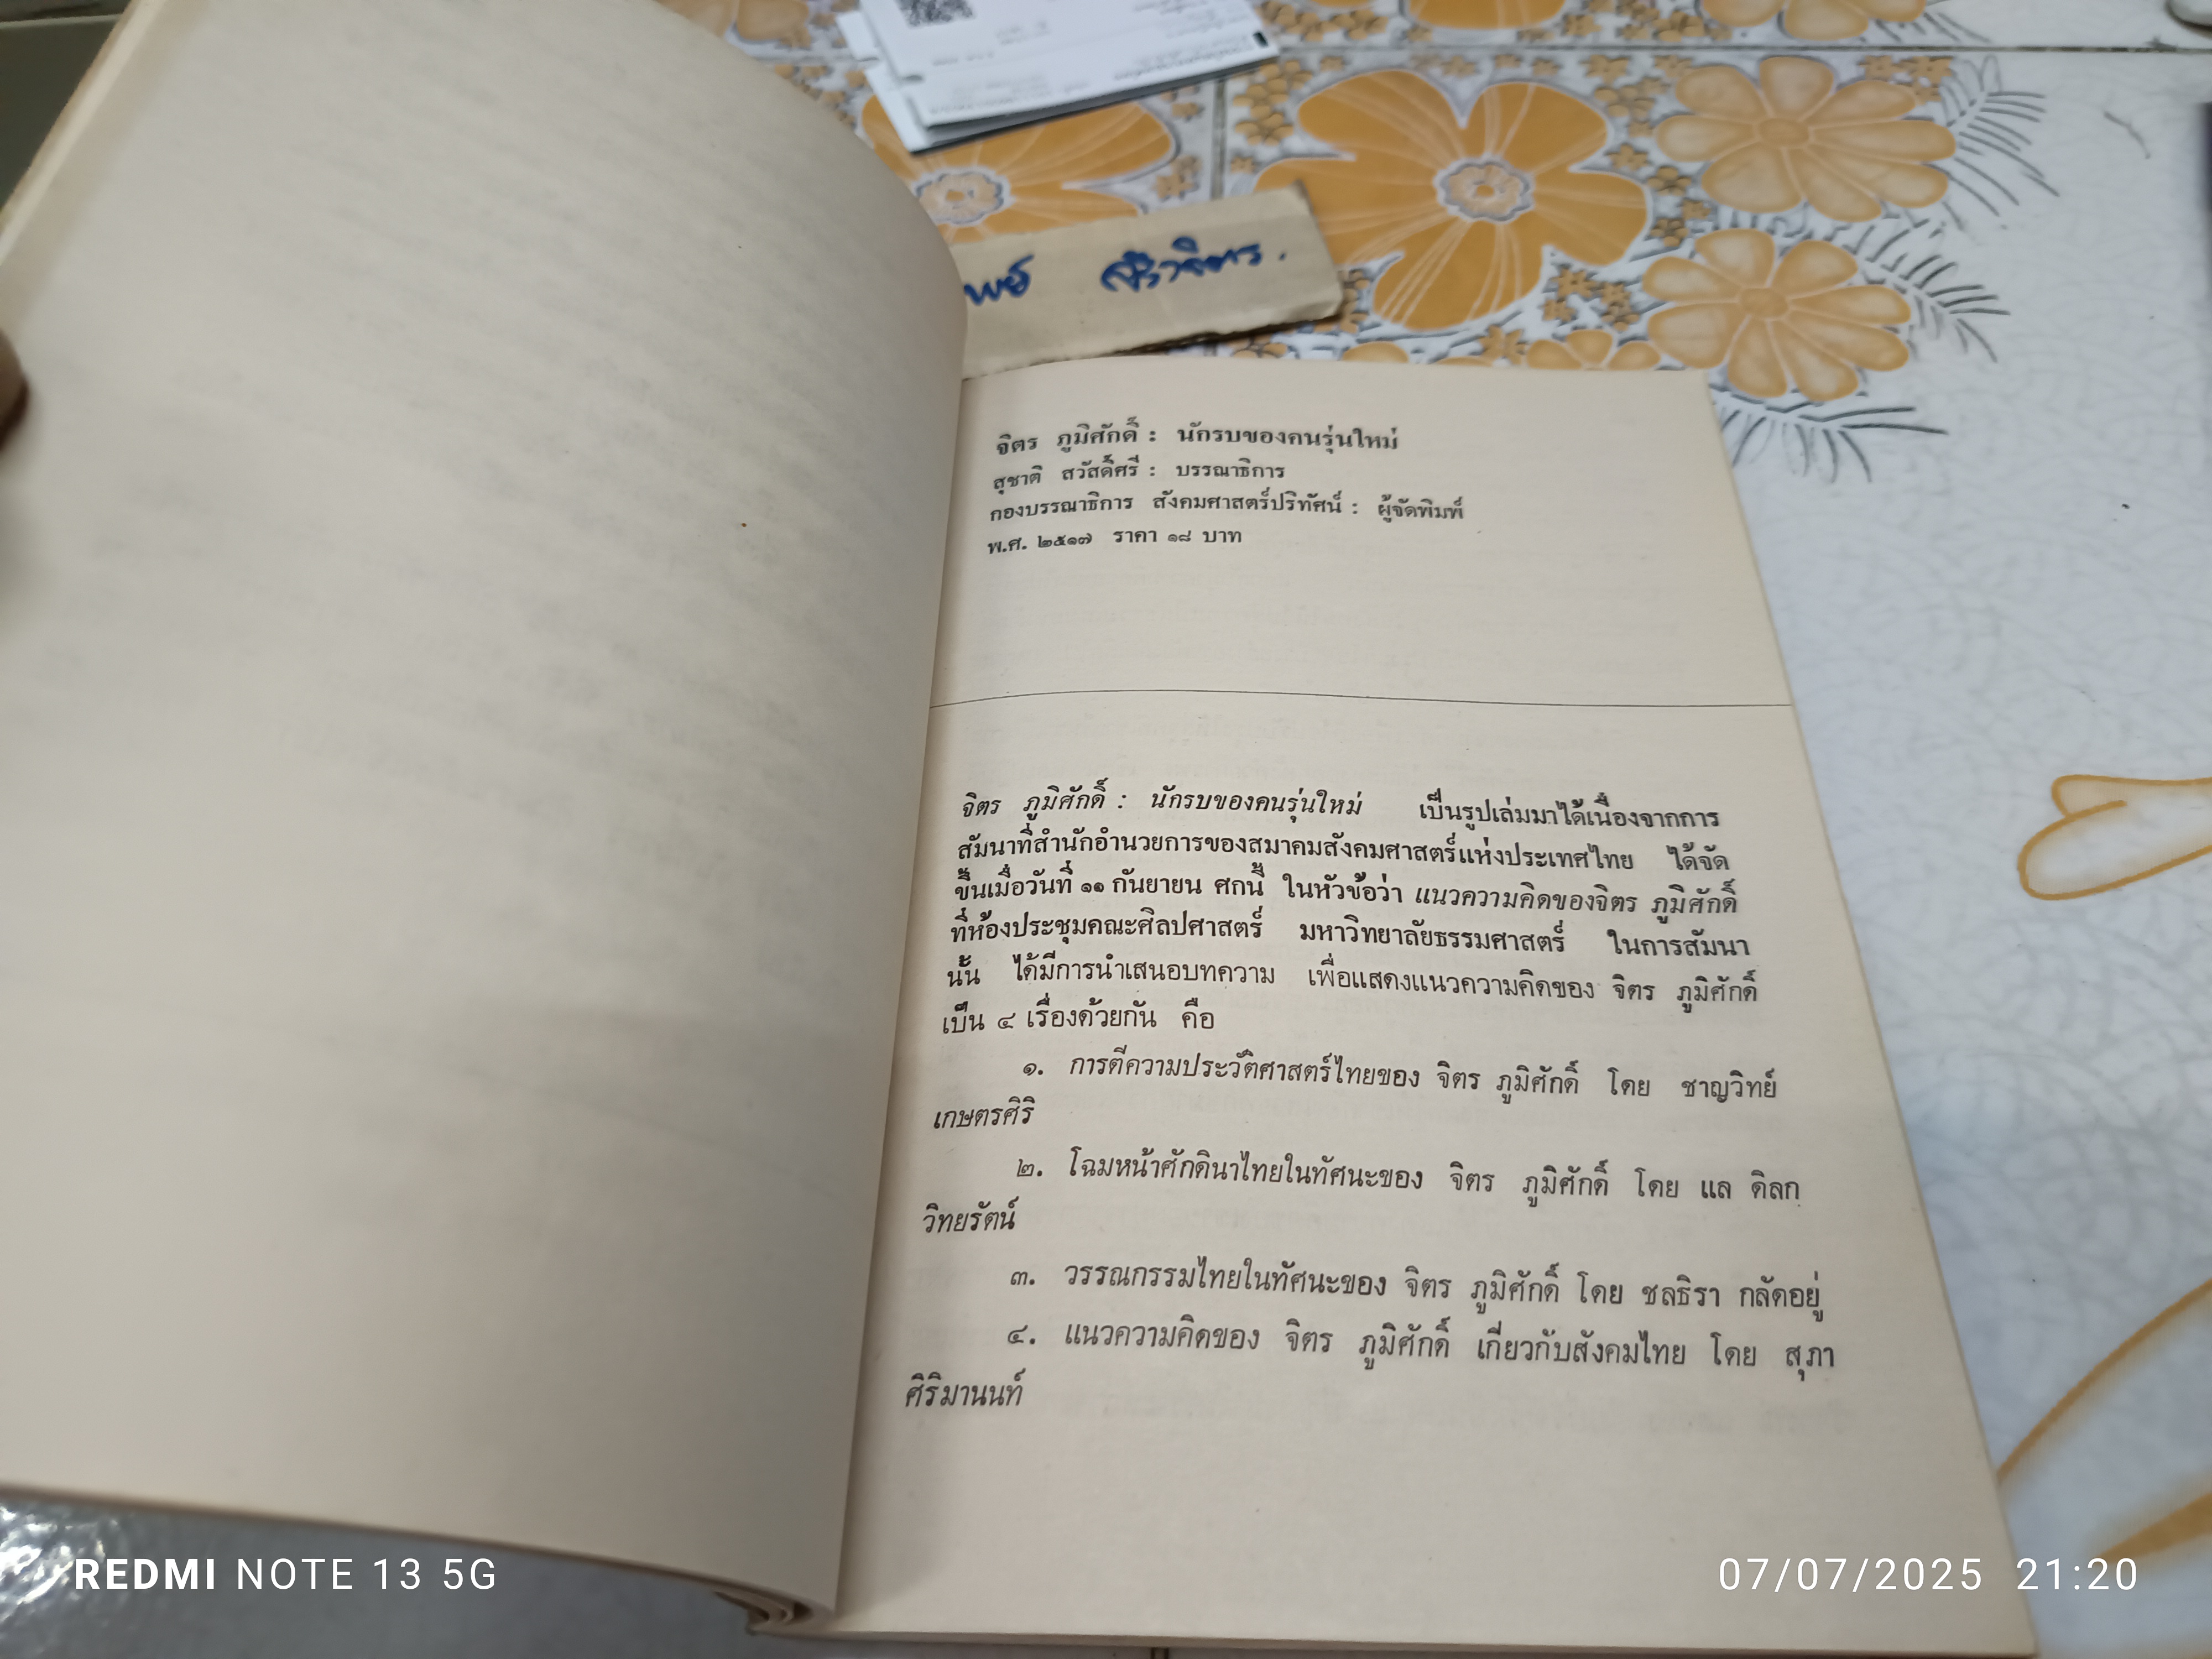 พย์
จิตร ภูมิศักดิ์ : นักรบของคนรุ่นใหม่
สุชาติ สวัสดิ์ศรี : บรรณาธิการ
กองบรรณาธิการ สังคมศาสตร์ปริทัศน์ : ผู้จัดพิมพ์
พ.ศ. ๒๕๑๗ ราคา ๑๘ บาท
จิตร ภูมิศักดิ์ : นักรบของคนรุ่นใหม่ เป็นรูปเล่มมาได้เนื่องจากการ
สัมนาที่สำนักอำนวยการของสมาคมสังคมศาสตร์แห่งประเทศไทย ได้จัด
ขึ้นเมื่อวันที่ ๑๑ กันยายน ศกนี้ ในหัวข้อว่า แนวความคิดของจิตร ภูมิศักดิ์
ที่ห้องประชุมคณะศิลปศาสตร์ มหาวิทยาลัยธรรมศาสตร์ ในการสัมนา
นั้น ได้มีการนำเสนอบทความ เพื่อแสดงแนวความคิดของ จิตร ภูมิศักดิ์
เป็น ๔ เรื่องด้วยกัน คือ
๑. การตีความประวัติศาสตร์ไทยของ จิตร ภูมิศักดิ์ โดย ชาญวิทย์
เกษตรศิริ
๒. โฉมหน้าศักดินาไทยในทัศนะของ จิตร ภูมิศักดิ์ โดย แล ดิลก
วิทยรัตน์
๓. วรรณกรรมไทยในทัศนะของ จิตร ภูมิศักดิ์ โดย ชลธิรา กลัดอยู่
๔. แนวความคิดของ จิตร ภูมิศักดิ์ เกี่ยวกับสังคมไทย โดย สุภา
ศิริมานนท์
REDMI NOTE 13 5G
07/07/2025 21:20